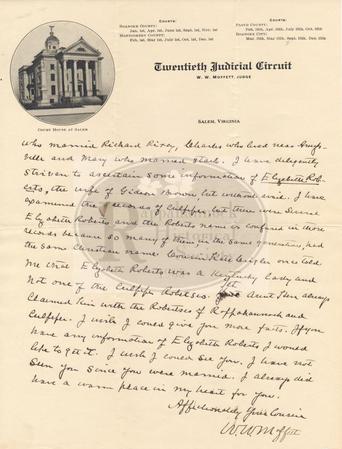 COURTS:
ROANOKE COUNTY:
Jan. 1st, Apr. 1st, June 1st, Sept. 1st, Nov. 1st
MONTGOMERY COUNTY:
Feb. 1st, Mar. 1st, July 1st, Oct. 1st, Dec. 1st
COURTS:
FLOYD COUNTY:
ROANOKE CITY:
Twentieth Judicial Circuit
W. W. MOFFETT, JUDGE
COURT HOUSE AT SALEM
SALEM, VIRGINIA
who married Richard Rixey, Charles who lived near
ville and Mary who married Stark. I have diligently
striven to ascertain some information of Elizabeth Rob-
erts, the wife of Gideon Brown, but without avail. I have
examined the records of Culpeper, but there were several
Elizabeth Roberts and the Roberts name is confused in those
records because so many of them, in the same generation, had
the same Christian name. Cousin Kate once told
me that Elizabeth Roberts was a Kentucky lady and
not one of the Culpeper Robertses. Yet Aunt always
claimed kin with the Robertses of Rappahannock and
Culpeper. I wish I could give you more facts. If you
have any information of Elizabeth Roberts I would
like to get it. I wish I could see you. I have not
seen you since you were married. I always did
have a warm place in my heart for you.
Affectionately Your Cousin
W. W. Moffett